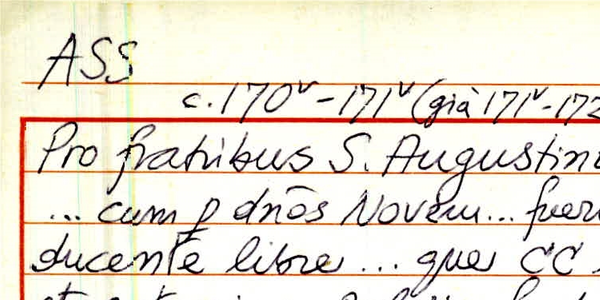 ASS
c. 170v - 171v (già 171v - 172
Pro fratribus S. Augustini
... cum p dnōs Novem ... fuer
ducente libre ... que CC